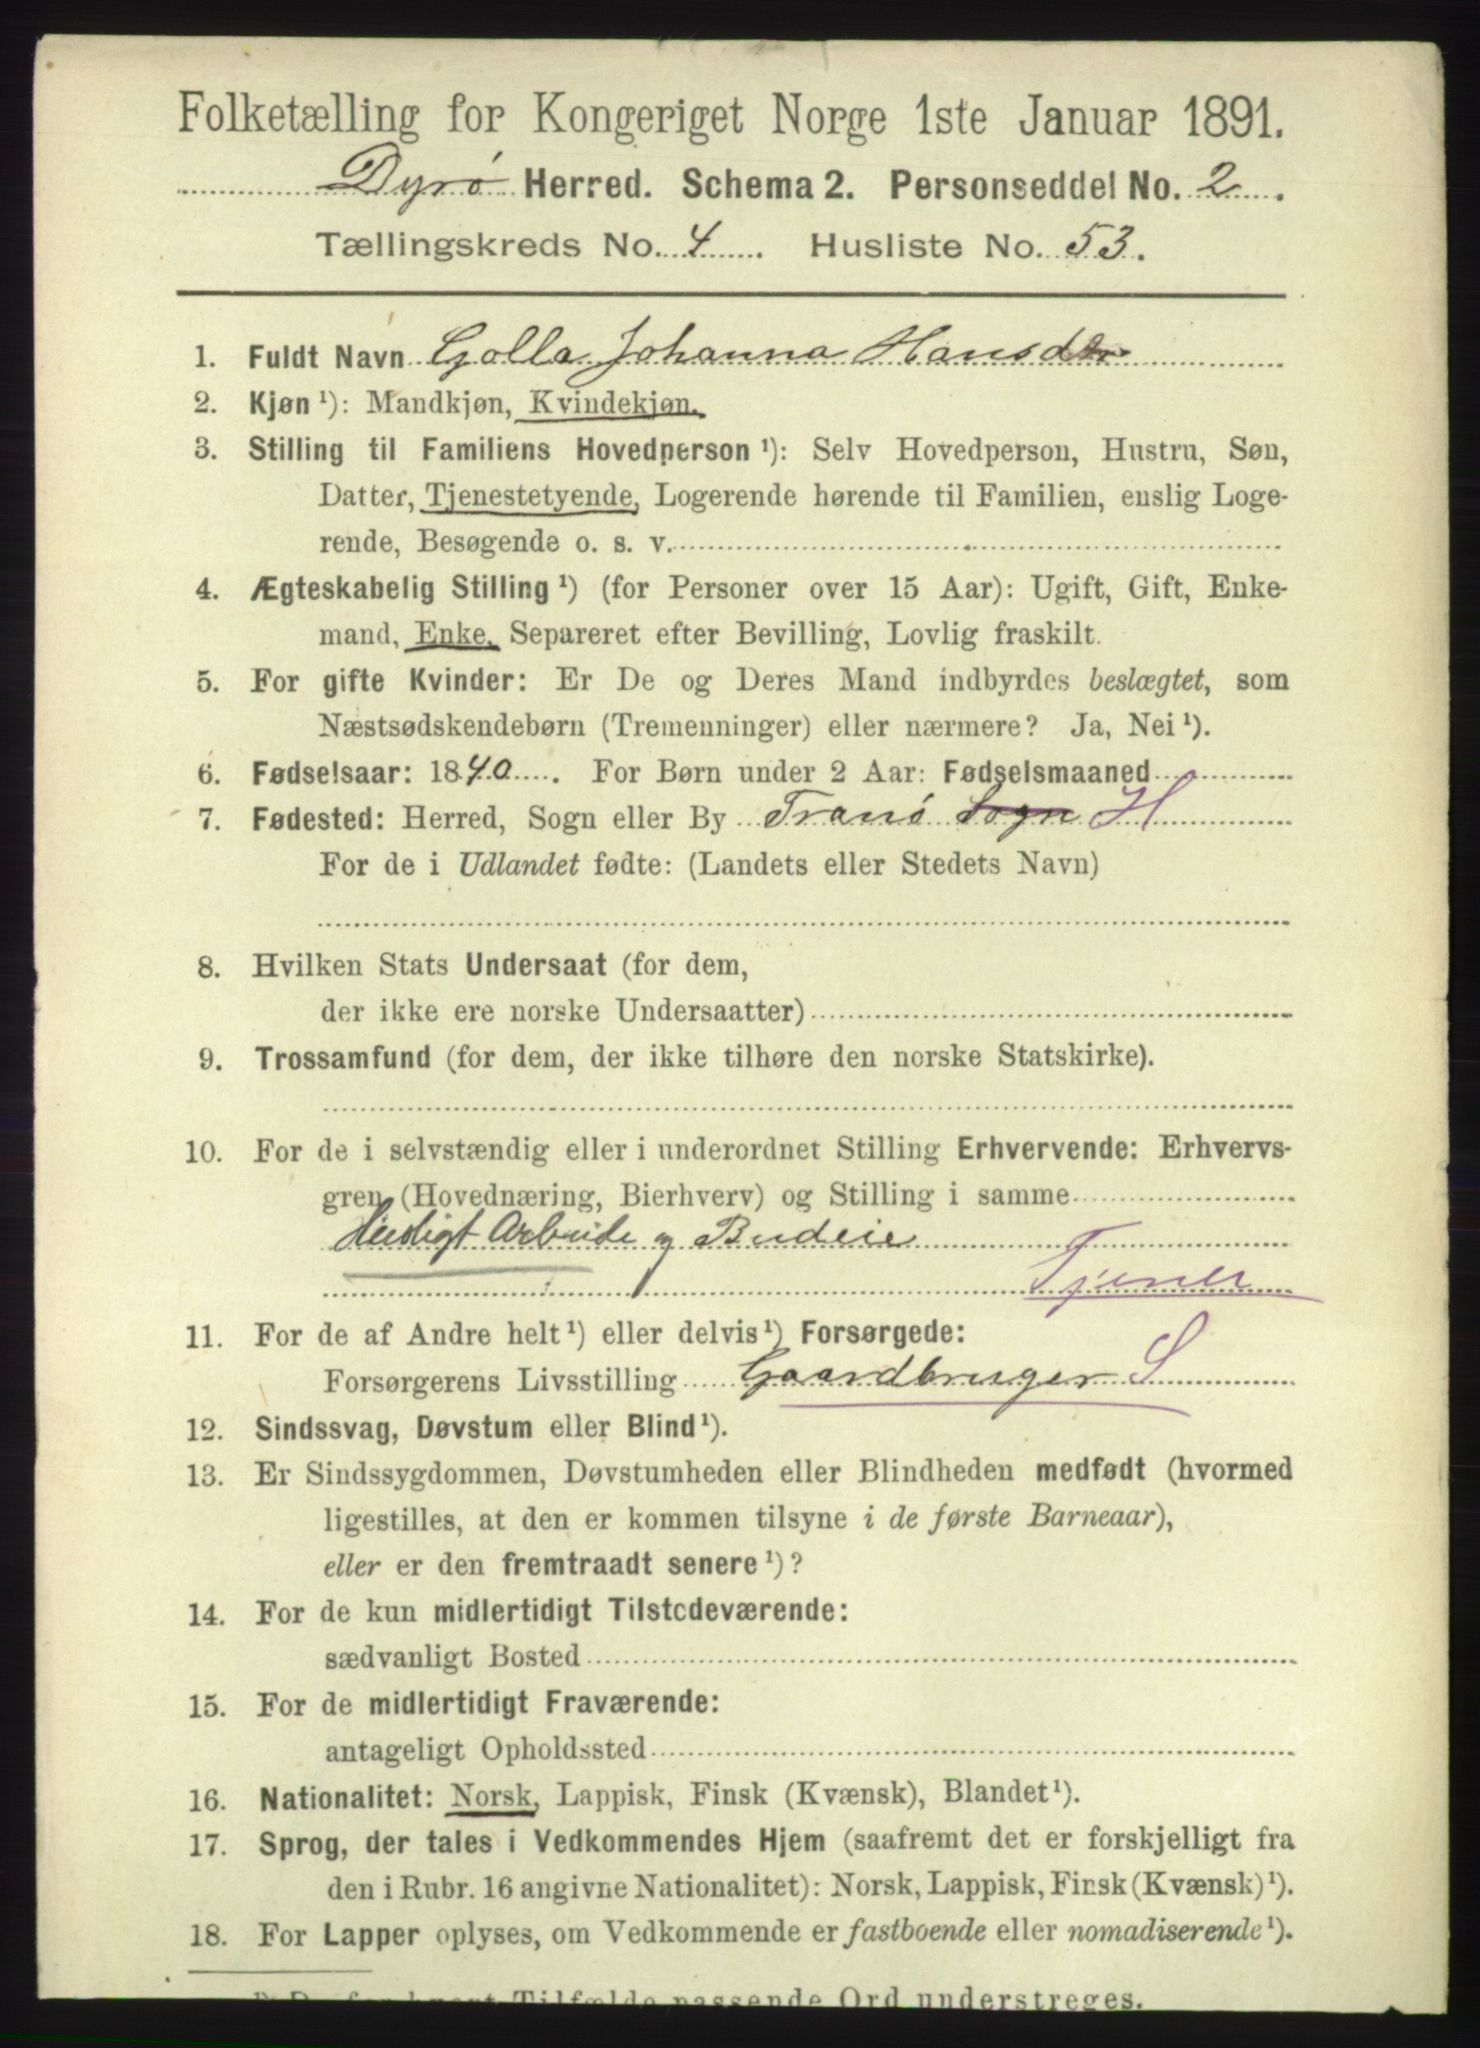 Folketælling for Kongeriget Norge 1ste Januar 1891.
Dyrø Herred. Schema 2. Personseddel No. 2.
Tællingskreds No. 4. Husliste No. 53.
1. Fuldt Navn Golla Johanna Hansdtr
2. Kjøn ¹): Mandkjøn, Kvindekjøn.
3. Stilling til Familiens Hovedperson ¹): Selv Hovedperson, Hustru, Søn,
Datter, Tjenestetyende, Logerende hørende til Familien, enslig Loge-
rende, Besøgende o. s. v.
4. Ægteskabelig Stilling ¹) (for Personer over 15 Aar): Ugift, Gift, Enke-
mand, Enke, Separeret efter Bevilling, Lovlig fraskilt.
5. For gifte Kvinder: Er De og Deres Mand indbyrdes beslægtet, som
Næstsødskendebørn (Tremenninger) eller nærmere? Ja, Nei ¹).
6. Fødselsaar: 1840. For Børn under 2 Aar: Fødselsmaaned
7. Fødested: Herred, Sogn eller By Tranø Sogn H
For de i Udlandet fødte: (Landets eller Stedets Navn)
8. Hvilken Stats Undersaat (for dem,
der ikke ere norske Undersaatter)
9. Trossamfund (for dem, der ikke tilhøre den norske Statskirke).
10. For de i selvstændig eller i underordnet Stilling Erhvervende: Erhvervs-
gren (Hovednæring, Bierhverv) og Stilling i samme
Huusligt Arbeide og Budeie
Tjener
11. For de af Andre helt ¹) eller delvis ¹) Forsørgede:
Forsørgerens Livsstilling Gaardbruger S
12. Sindssvag, Døvstum eller Blind ¹).
13. Er Sindssygdommen, Døvstumheden eller Blindheden medfødt (hvormed
ligestilles, at den er kommen tilsyne i de første Barneaar),
eller er den fremtraadt senere ¹)?
14. For de kun midlertidigt Tilstedeværende:
sædvanligt Bosted
15. For de midlertidigt Fraværende:
antageligt Opholdssted
16. Nationalitet: Norsk, Lappisk, Finsk (Kvænsk), Blandet ¹).
17. Sprog, der tales i Vedkommendes Hjem (saafremt det er forskjelligt fra
den i Rubr. 16 angivne Nationalitet): Norsk, Lappisk, Finsk (Kvænsk) ¹).
18. For Lapper oplyses, om Vedkommende er fastboende eller nomadiserende ¹).
¹) De for hvert Tilfælde passende Ord understreges.